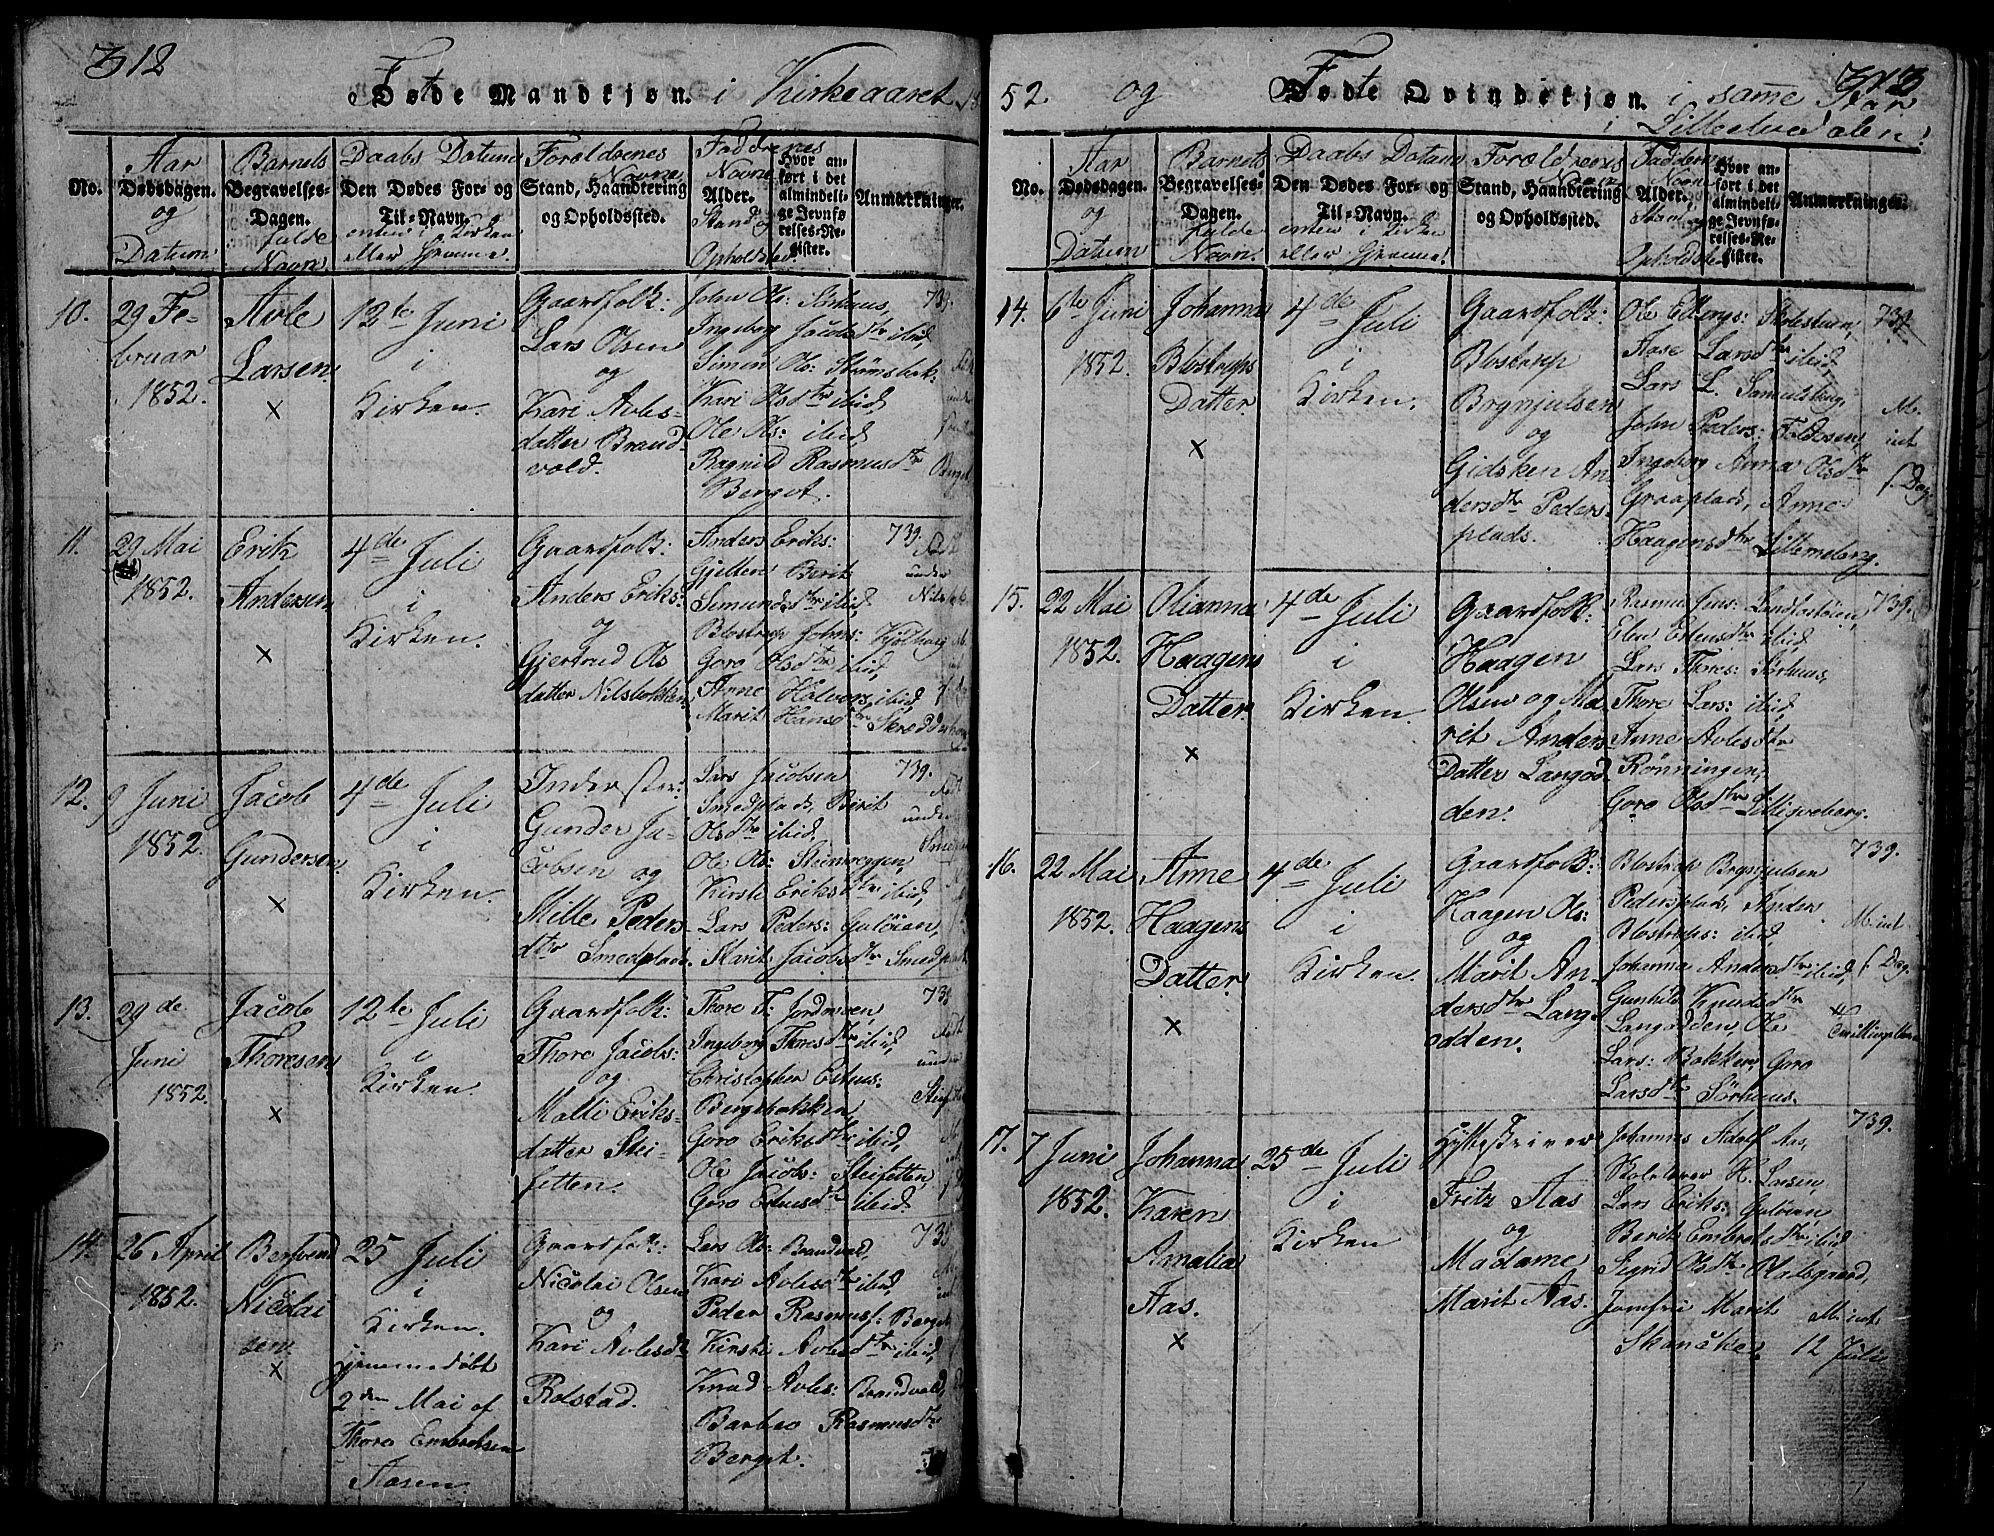 312
Fødte Mandkjøn. i Kirkeaaret 18
No.
Aar
Dødsdagen.
og
Datum
Barnets
Begravelses-
Dagen.
fulde
Navn
Daabs Datum
Den Dødes For- og
Til-Navn.
enten i Kirken
eller Hjemme.
Forældrenes
Navne
Stand, Haandtering
og Opholdssted.
Faddrenes
Navne
Alder.
Stand og
Opholdsted
Hvor an-
ført i det
almindeli-
ge Jevnfø-
relses-Re-
gister.
Anmærkninger.
10.
29 Fe-
bruar
1852.
Avle
Larsen
×
12te Juni
i
Kirken.
Gaardfolk:
Lars Olsen
og
Kari Avles-
datter Brand-
vold.
John Ols: Sørhuus,
Ingeborg Jacobsdtr ibid
Simen Ols: Strømsbak:
Kari Olsdtr ibid,
Ole Ols: ibid,
Ragnild Rasmusdtr
Berget.
739.
11.
29 Mai
1852.
Erik
Andersen
×
4de Juli
i
Kirken.
Gaardfolk:
Anders Eriks:
og
Gjertrud Ols
datter Nilsbakken
Anders Eriks:
Gjelten Berit
Simundsdtr ibid,
Blostrup Johns: Kjølhaug
Goro Olsdtr ibid,
Arne Halvors: ibid,
Marit Hansdtr Skrædder
739.
under
12.
9 Juni
1852.
Jacob
Gundersen.
×
4de Juli
i
Kirken.
Inderster:
Gunder Ja-
cobsen og
Mille Peders
dtr Smedplads.
Lars Jacobsen
Smedplads, Berit
Olsdtr ibid,
Ole Ols: Steinveggen,
Kirsti Eriksdtr ibid,
Lars Peders: Galøien,
Marit Jacobsdtr Smedpl
739.
under
13.
29de
Juni
1852.
Jacob
Thoresen
×
12te Juli
i
Kirken.
Gaardfolk:
Thore Jacobs:
og
Malli Eriks-
datter Stei-
fetten.
Thore T: Jordmoen,
Ingeborg Thoresdtr ibid,
Christopher Estens:
Bergebakken
Goro Eriksdtr ibid,
Ole Jacobs: Steifetten,
Goro Estensdtr ibid.
739
under
14.
26 April
1852.
Bersvend
Nicolai
sen
×
25 Juli
i
Kirken.
hjemmedøbt
2den Mai af
Thore Embretsen
Aasen.
Gaardfolk:
Nicolai Olsen
og
Kari Avlesdr
Rolstad.
Lars Ols: Brandvold
Kari Avlesdtr ibid,
Peder Rasmus: Berget
Kirsti Avlesdtr ibid,
Knud Avles: Brandvold,
Barbro Rasmusdtr
Berget.
739
52. og Fødte Qvindekjøn. i samme Aar
i Lilleelvedalen!
313
No.
Aar
Dødsdagen.
og
Datum
Barnets
Begravelses-
Dagen.
fulde
Navn.
Daabs Datum
Den Dødes For- og
Til-Navn.
enten i Kirken
eller Hjemme!
Forældrenes
Navne
Stand, Haandtering
og Opholdssted.
Faddernes
Navne
Alder.
Stand og
Opholdsted
Hvor an-
ført i det
almindeli-
ge Jevnfø-
relses-Re-
gister.
Anmærkninger.
14.
6te Juni
1852.
Johanna
Blostrups
Datter
×
4de Juli
i
Kirken.
Gaardfolk:
Blostrup
Brynjulsen
og
Gidsken An
dersdtr Peders-
plads.
Ole Edbergs: Skolestuen,
Aase Larsdtr ibid,
Lars L. Samulsting,
John Peders: Foldosen,
Ingeborg Anna Olsdtr
Graaplads, Anne
Haagensdtr Lillemoberg.
739.
M.
int
f. Dag.
15.
22 Mai
1852.
Olianna
Haagens
Datter
×
4de Juli
i
Kirken.
Gaardfolk:
Haagen
Olsen og Ma
rit Anders
Datter Langod
den.
Rasmus Jens: Landfastøien,
Elen Estensdtr ibid,
Lars Thores: Sørhuus,
Thore Lars: ibid,
Anne Avlesdtr
Rønningen,
Goro Olsdtr Lilligveberg.
739.
16.
22 Mai
1852.
Anne
Haagens
Datter.
×
4de Juli
i
Kirken.
Gaardfolk:
Haagen Ols:
og
Marit An-
dersdtr Lang
odden.
Blostrup Brynjulsen
Pedersplads, Anders
Blostrups: ibid,
Johanna Andersdtr ibid,
Gunhild Knudsdtr
Langodden, Ole
Lars: Bakken, Goro
Larsdtr Sørhuus.
739.
M. int
f. Dag.
17.
7 Juni
1852.
Johanna
Karen
Amalia
Aas.
×
25de Juli
i
Kirken.
Hytteskriver
Fritz Aas
og
Madame
Marit Aas.
Johannes Adolf Aas,
Skolelærer H. Larsen,
Lars Eriks: Galøien,
Berit Embretsdtr ibid,
Sigrid Olsdtr Ratsgaard,
Jomfru Marit
Skancke.
739.
M. int
12 Juli